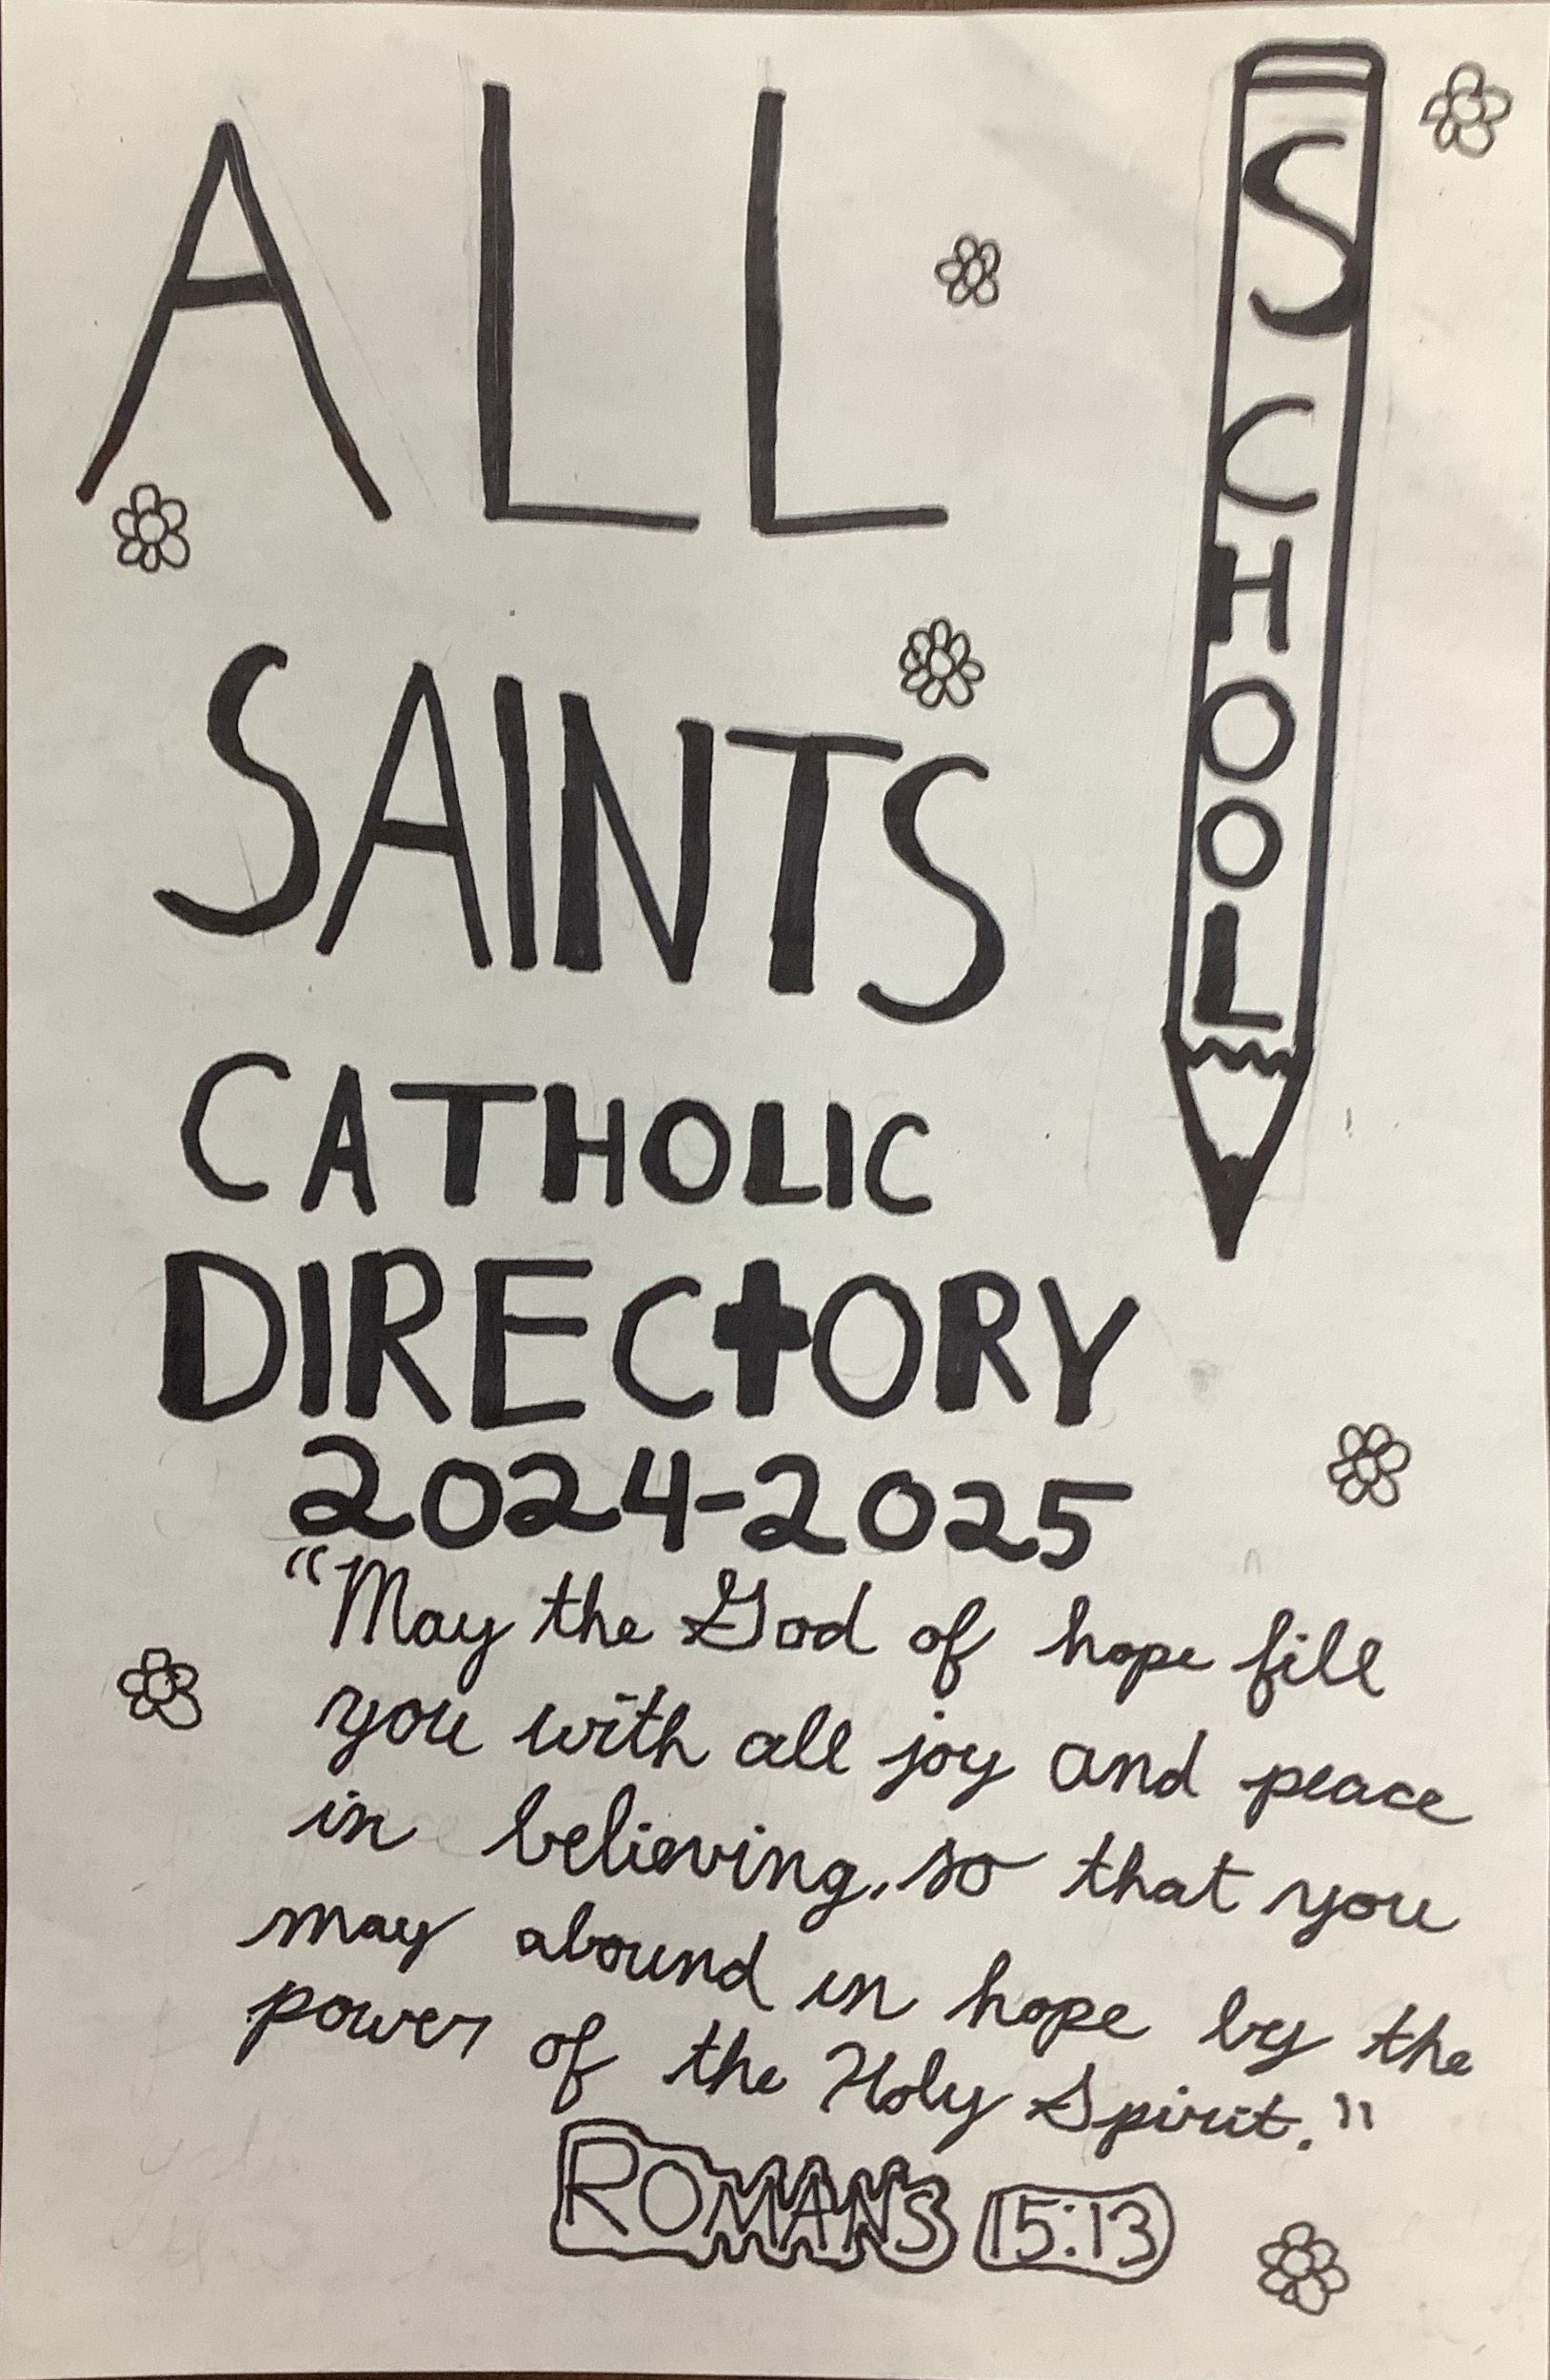 ALL
SAINTS
CATHOLIC
SCHOOL
DIRECTORY
2024-2025
"May the God of hope fill
you with all joy and peace
in believing, so that you
may abound in hope by the
power of the Holy Spirit."
ROMANS 15:13